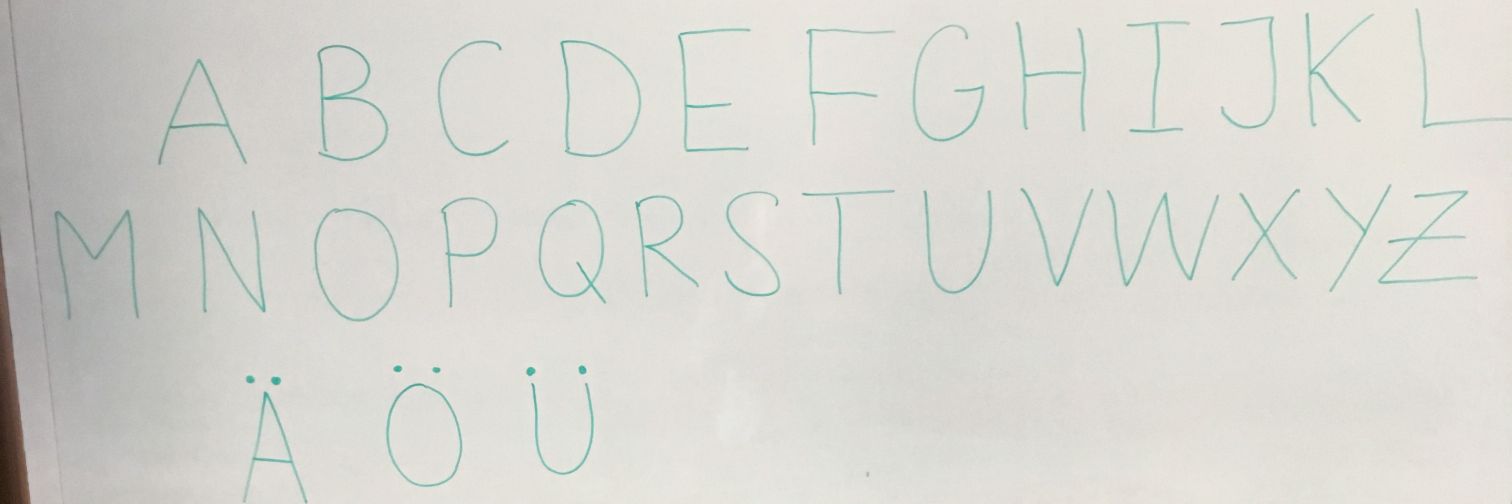 A B C D E F G H I J K L
M N O P Q R S T U V W X Y Z
Ä Ö Ü